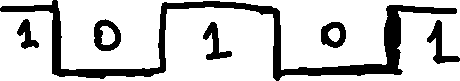 1 0 1 0 1